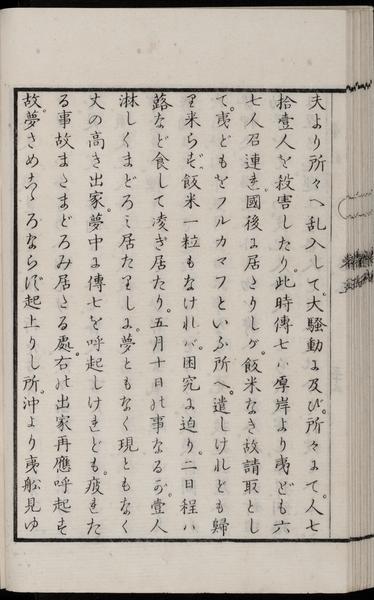 夫より所々へ乱入して、大騒動に及び、所々にて、人七
拾壹人を殺害したり。此時傳七ハ厚岸より夷ども六
七人召連、國後に居さりしが、飯米なき故請取とし
て、夷どもをフルカマフといふ所へ、遣しけれども歸
り来らず、飯米一粒もなけれバ、困究に迫り、二日程ハ
蕗など食して凌ぎ居たり。五月十日の事なるが、壹人
淋しくまどろミ居たりしに、夢ともなく現ともなく
丈の高き出家、夢中に傳七を呼起しけれども、疲れた
る事故まさまどろみ居さる處、右の出家再應呼起す
故、夢さめこゝろならず起上りし所、沖より夷舩見ゆ